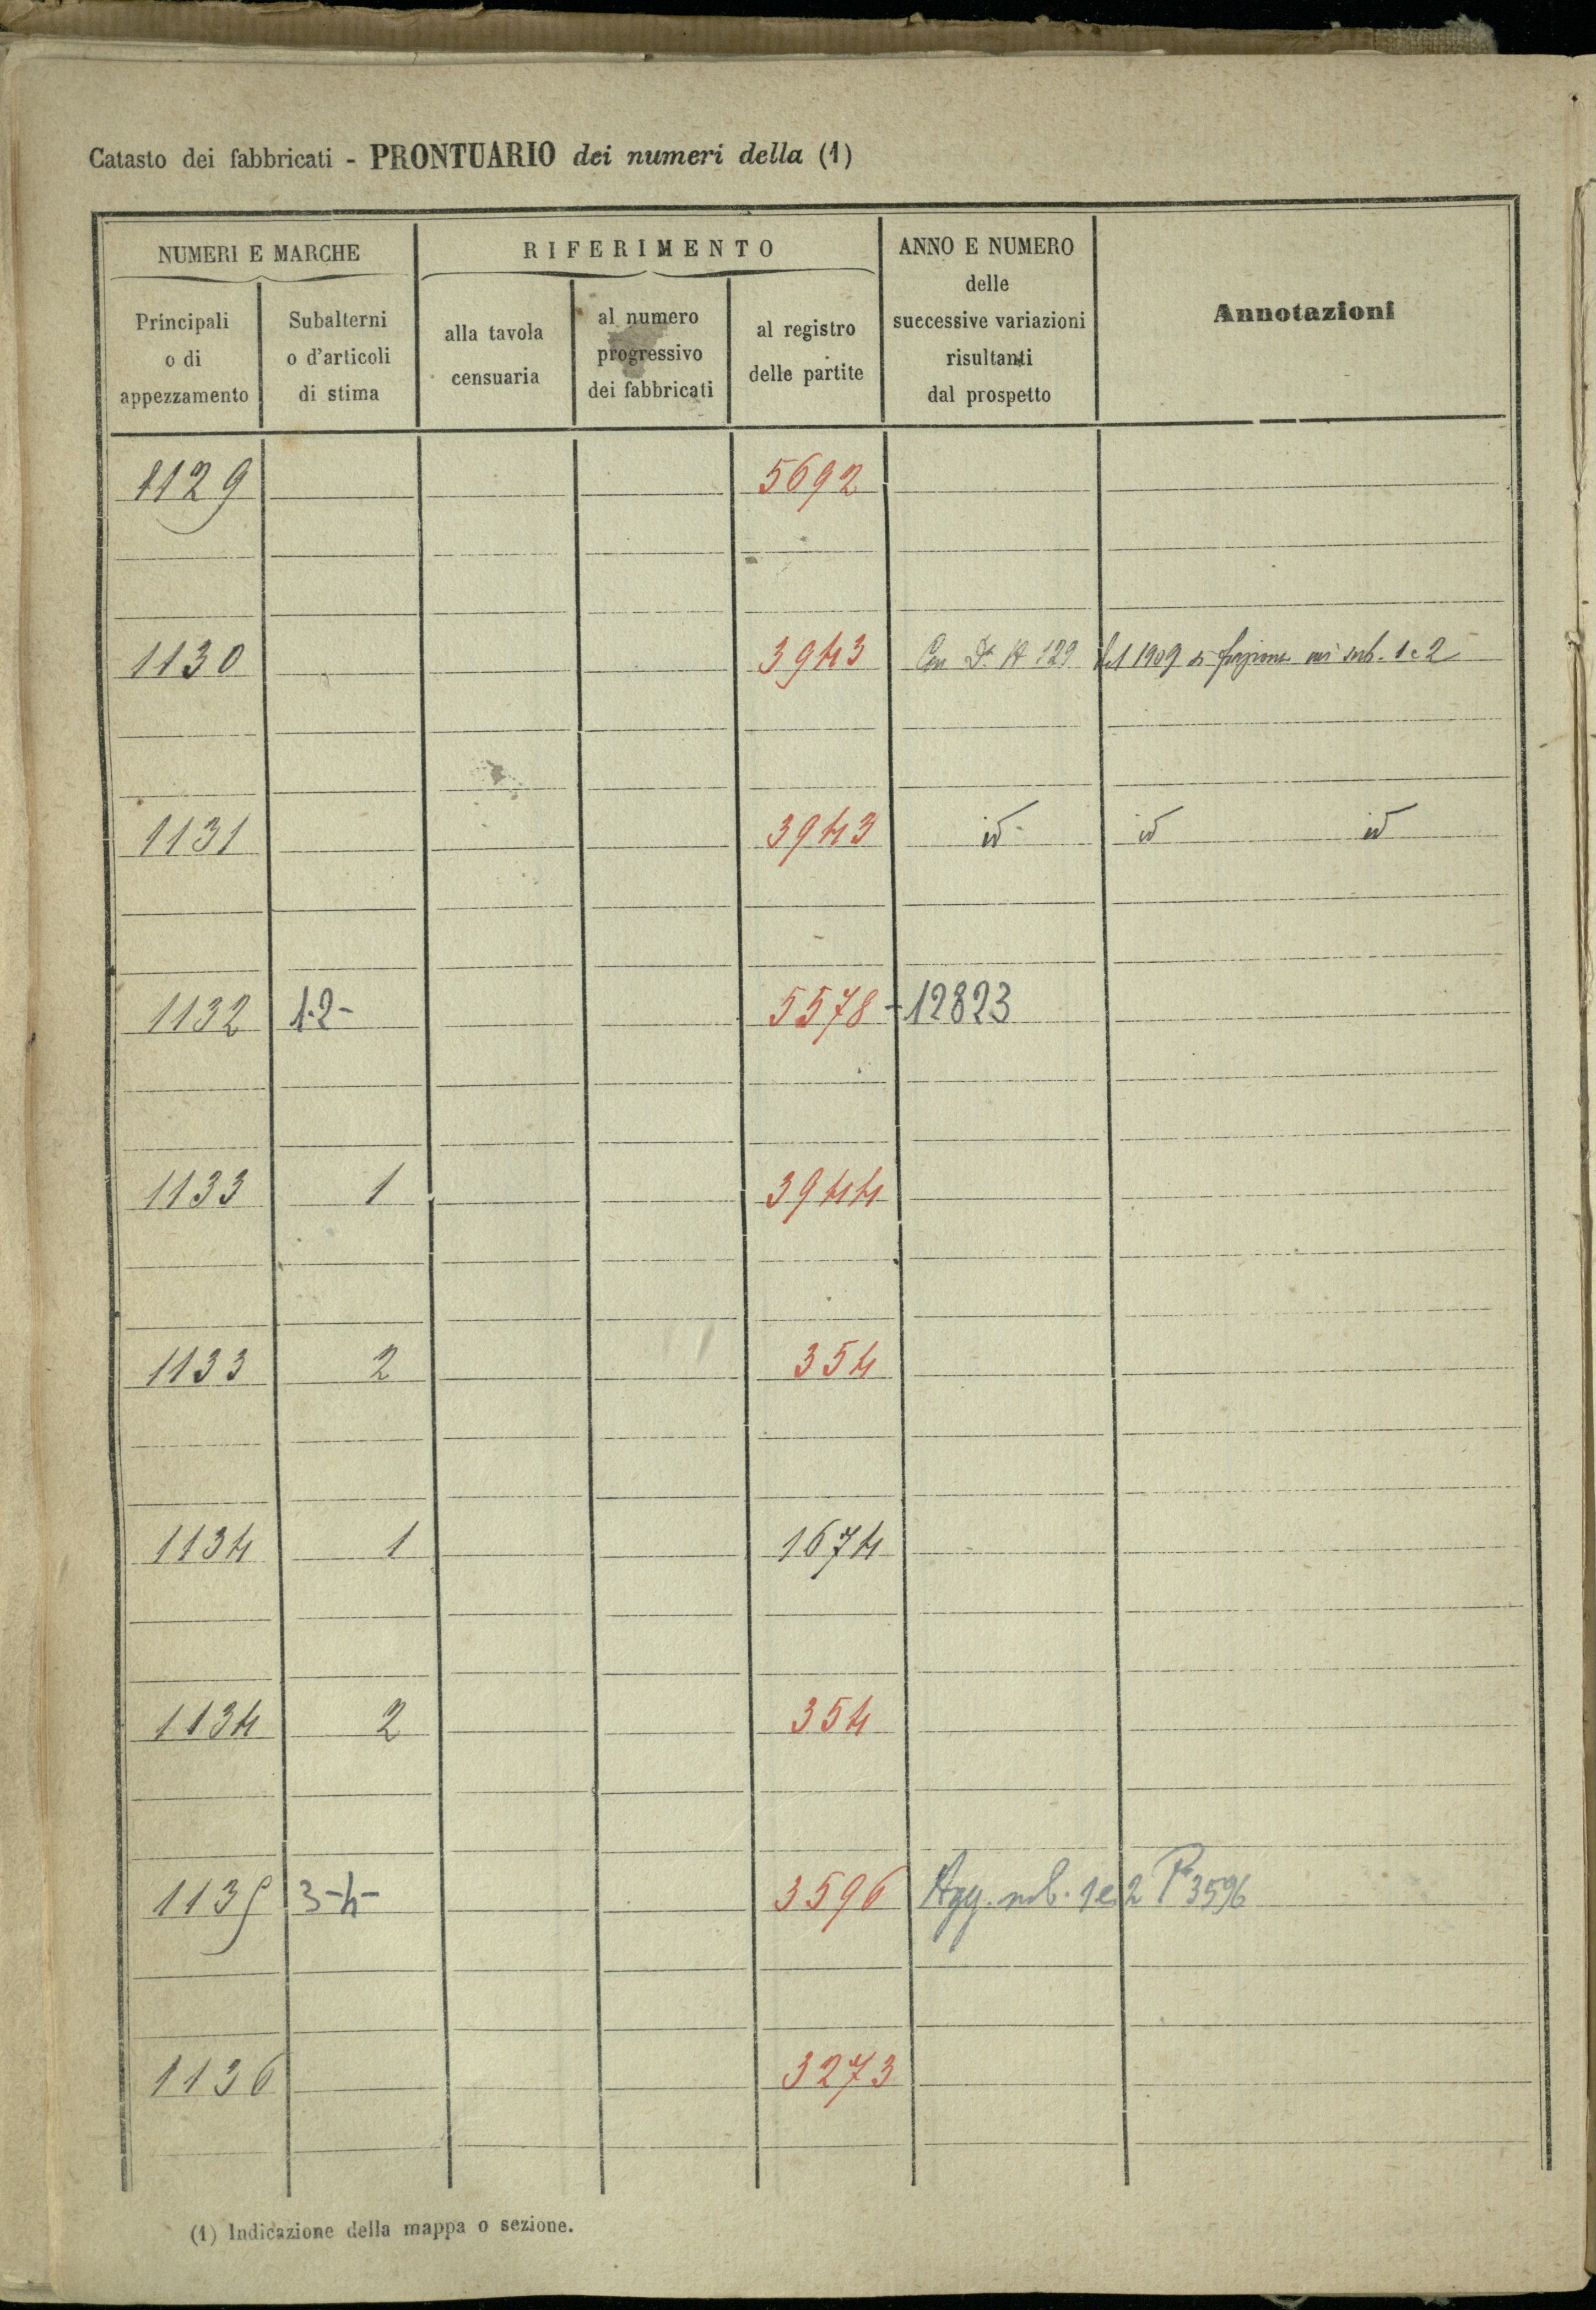 Catasto dei fabbricati - PRONTUARIO dei numeri della (1)
NUMERI E MARCHE
RIFERIMENTO
ANNO E NUMERO
delle
successive variazioni
risultanti
dal prospetto
Annotazioni
Principali
o di
appezzamento
Subalterni
o d'articoli
di stima
alla tavola
censuaria
al numero
progressivo
dei fabbricati
al registro
delle partite
1129 5692
1130 3943 129 1909 sub. 1 e 2
1131 3943 id id id
1132 1-2- 5578 - 12823
1133 1 3944
1133 2 354
1134 1 1674
1134 2 354
1135 3-4- 3596 Agg. sub. 1 e 2 Pa 3596
1136 3273
(1) Indicazione della mappa o sezione.